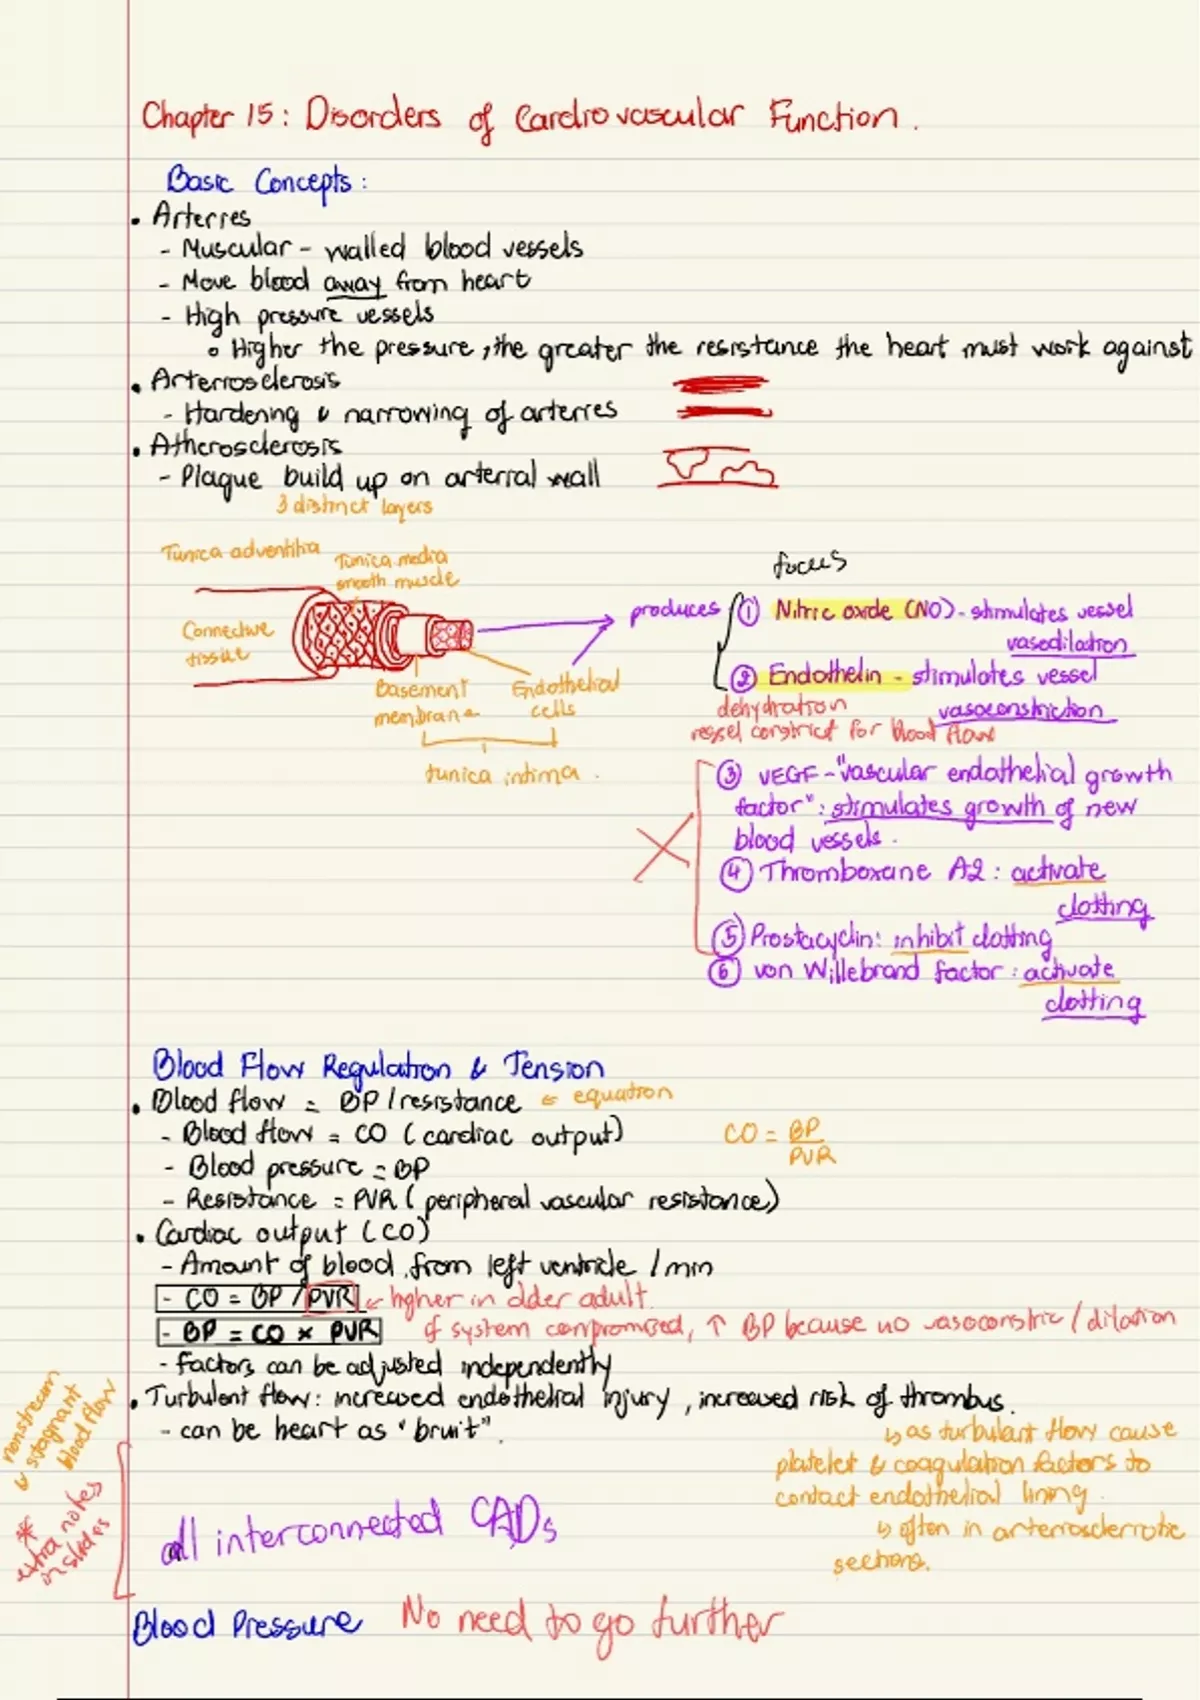 Chapter 15: Disorders of Cardiovascular Function.
Basic Concepts:
• Arteries
- Muscular - walled blood vessels
- Move blood away from heart
- High pressure vessels
◦ Higher the pressure, the greater the resistance the heart must work against
• Arteriosclerosis
- Hardening & narrowing of arteries
• Atherosclerosis
- Plaque build up on arterial wall
3 distinct layers
Tunica adventitia
Tunica media
smooth muscle
Connective
tissue
Basement
membrane
Endothelial
cells
tunica intima.
focus
produces
① Nitric oxide (NO) - stimulates vessel
vasodilation
② Endothelin - stimulates vessel
vasoconstriction
dehydration
vessel constrict for blood flow
③ VEGF - "vascular endathelial growth
factor": stimulates growth of new
blood vessels.
④ Thromboxane A2: activate
clotting
⑤ Prostacyclin: inhibit clotting
⑥ von Willebrand factor: activate
clotting
Blood Flow Regulation & Tension
• Blood flow = BP / resistance ← equation
- Blood flow = CO (cardiac output)
CO = BP
PVR
- Blood pressure = BP
- Resistance = PVR (peripheral vascular resistance)
• Cardiac output (CO)
- Amount of blood from left ventricle / min
- CO = BP / PVR ← higher in older adult.
- BP = CO × PVR
if system compromised, ↑ BP because no vasoconstric / dilation
- factors can be adjusted independently
• Turbulent flow: increased endothelial injury, increased risk of thrombus.
- can be heart as "bruit".
↳ as turbulant flow cause
platelet & coagulation factors to
contact endothelial lining.
↳ often in arteriosclerotic
sections.
nonstream
& stagnant
blood flow
*
extra notes
in slides
all interconnected CADs
Blood Pressure No need to go further